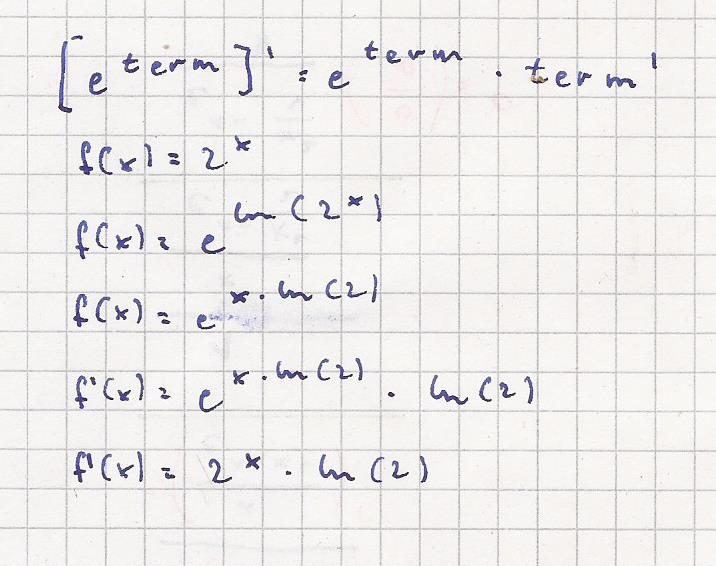 [e^term]' = e^term · term'
f(x) = 2^x
f(x) = e^ln(2^x)
f(x) = e^x·ln(2)
f'(x) = e^x·ln(2) · ln(2)
f'(x) = 2^x · ln(2)